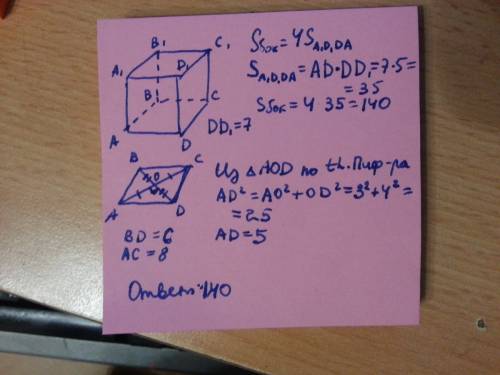 B₁
C₁
A₁
D₁
B
C
A
D
DD₁=7
Sбок=4S A₁D₁DA
S A₁D₁DA=AD·DD₁=7·5=
=35
Sбок=4 35=140
B
C
O
A
D
BD=6
AC=8
Из △AOD по th. Пиф-ра
AD²=AO²+OD²=3²+4²=
=25
AD=5
Ответ: 140